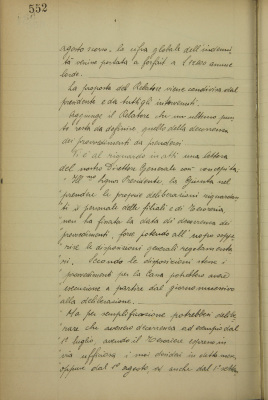 552
agosto scorso. la cifra globale dell'indenni
tà venne portata a forfait a £ annue
lorde.
La proposta del Relatore viene condivisa dal
presidente e da tutti gli intervenuti.
Aggiunge il Relatore che un ultimo pun
to resta da definire quello della decorrenza
dei provvedimenti da prendersi.
Vi è al riguardo in atti una lettera
del nostro Direttore Generale così concepita:
Ill.mo Signor Presidente, la Giunta nel
prendere le proprie deliberazioni riguardan
ti il personale delle filiali e di Tesoreria
non ha fissato la data di decorrenza dei
provvedimenti, forse potendo all' uopo suppe
rire le disposizioni generali regolamentari
vi. Secondo le disposizioni stesse i
provvedimenti per la Cassa potrebbero avere
esecuzione a partire dal giorno successivo
alla deliberazione.
Ma per semplificazione potrebbesi delibe
rare che avessero decorrenza ad esempio dal
1° luglio, avendo il Tesoriere
sia i suoi in
oppure dal 1° agosto ed anche dal 1°